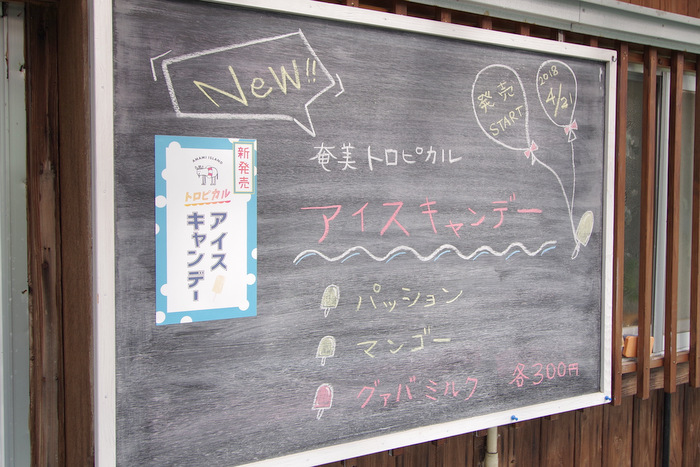 New!!
発売
START
2018
4/21
奄美トロピカル
アイスキャンデー
パッション
マンゴー
グァバ・ミルク 各300円
新発売
AMAMI ISLAND
トロピカル
アイス
キャンデー